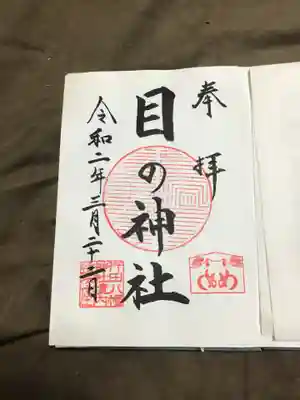 奉拝
目の神社
令和二年三月二十二日
め